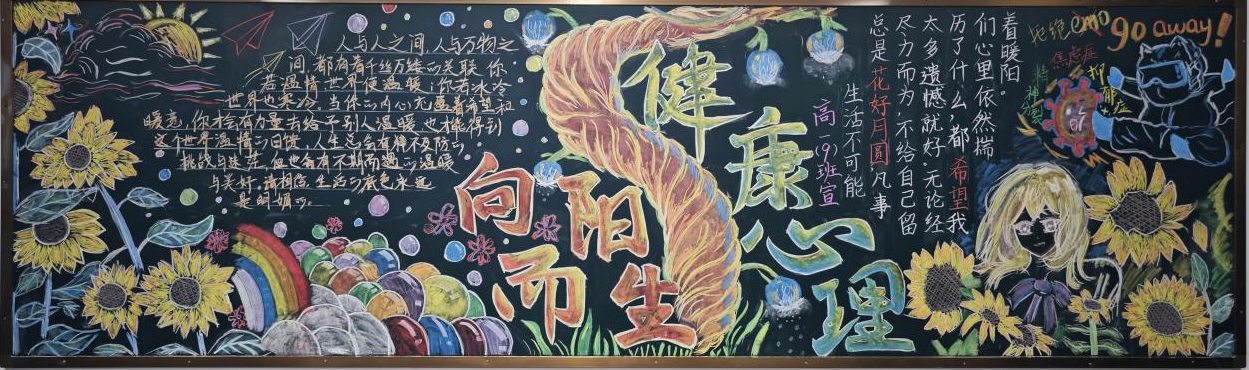 人与人之间,人与万物之
间,都有着千丝万缕的关联,你
若温情,世界便温暖;你若冰冷
世界也寒冷。当你的内心充盈着希望和
暖意,你才会有力量去给予别人温暖,也才能得到
这个世界温情的回馈。人生总会有猝不及防的
挑战与迷茫,但也会有不期而遇的温暖
与美好,请相信,生活的底色永远
是明媚的。
向阳
而生
健康
心理
高一(9)班宣
生活不可能
总是花好月圆,凡事
尽力而为,不给自己留
太多遗憾就好。无论经
历了什么,都希望我
们心里依然揣
着暖阳。
拒绝emo go away!
焦虑症
抑郁症
精神